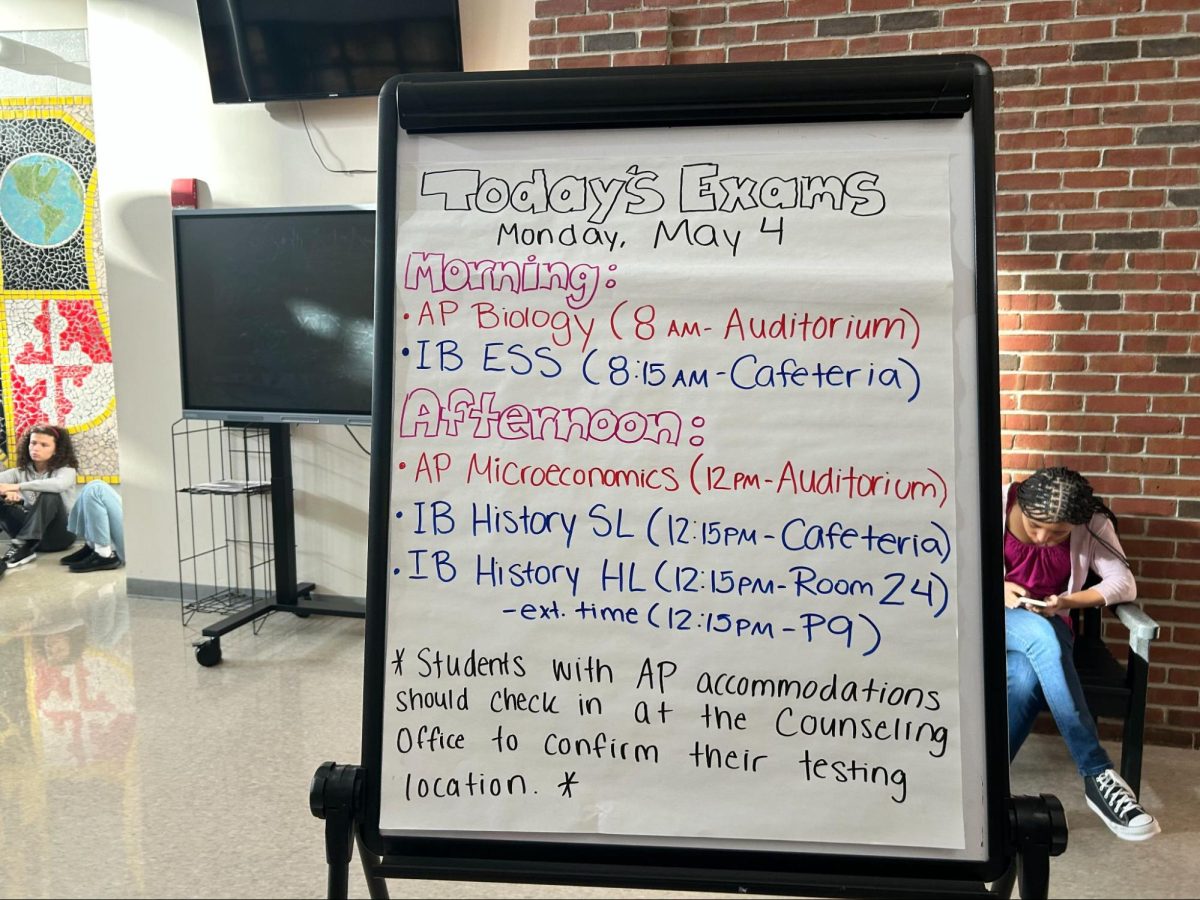 Today's Exams
Monday, May 4
Morning:
• AP Biology (8 AM - Auditorium)
• IB ESS (8:15 AM - Cafeteria)
Afternoon:
• AP Microeconomics (12 PM - Auditorium)
• IB History SL (12:15 PM - Cafeteria)
• IB History HL (12:15 PM - Room 24)
- ext. time (12:15 PM - P9)
* Students with AP accommodations
should check in at the Counseling
Office to confirm their testing
location. *